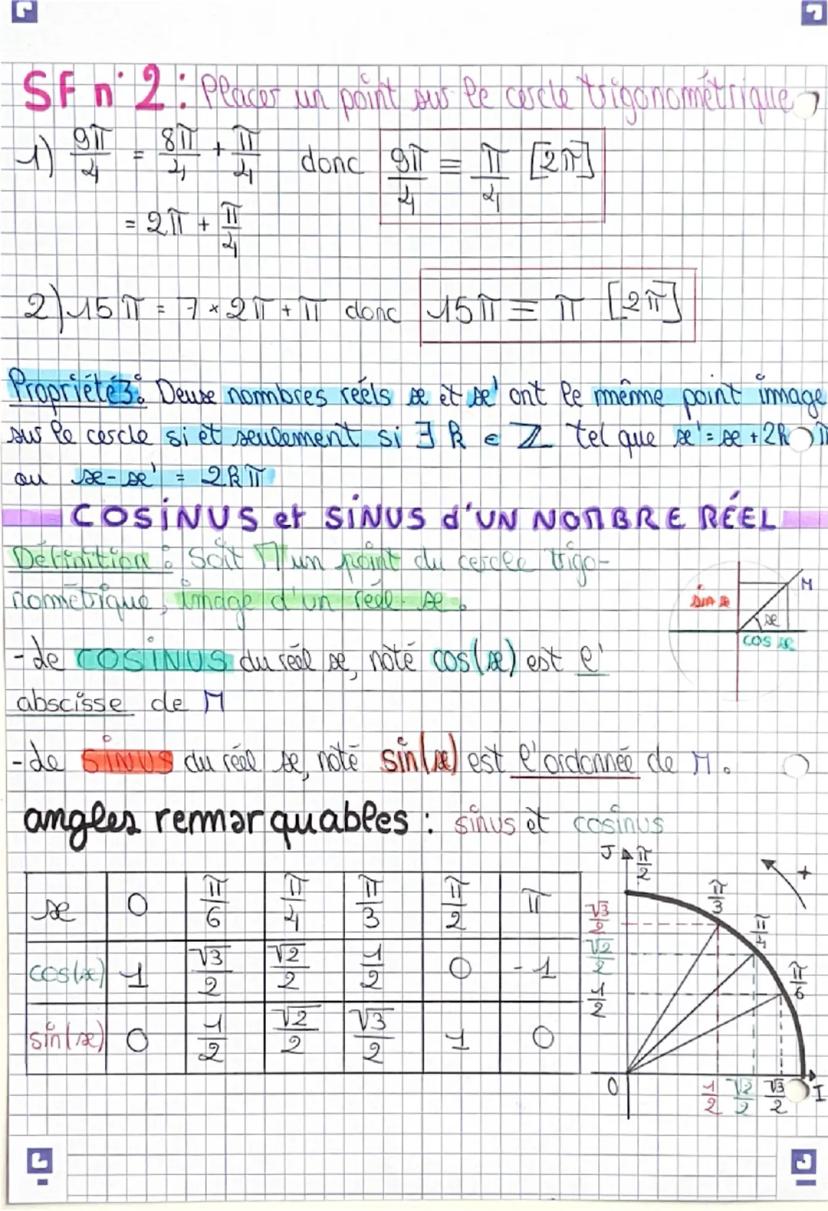 SF n°2 : Placer un point sur le cercle trigonométrique
1) 9π/4 = 8π/4 + π/4 donc 9π/4 ≡ π/4 [2π]
= 2π + π/4
2) 15π = 7 × 2π + π donc 15π ≡ π [2π]
Propriété 3 : Deux nombres réels x et x' ont le même point image
sur le cercle si et seulement si ∃ k ∈ ℤ tel que x' = x + 2kπ
ou x - x' = 2kπ
COSINUS et SINUS d'UN NOMBRE RÉEL
Définition : Soit M un point du cercle trigo-
nométrique, image d'un réel x.
sin x
M
x
cos x
- Le COSINUS du réel x, noté cos(x) est l'
abscisse de M
- Le SINUS du réel x, noté sin(x) est l'ordonnée de M.
angles remarquables : sinus et cosinus
x 0 π/6 π/4 π/3 π/2 π
cos(x) 1 √3/2 √2/2 1/2 0 -1
sin(x) 0 1/2 √2/2 √3/2 1 0
J π/2 +
π/3
√3/2 π/4
√2/2 π/6
1/2
0 1/2 √2/2 √3/2 I